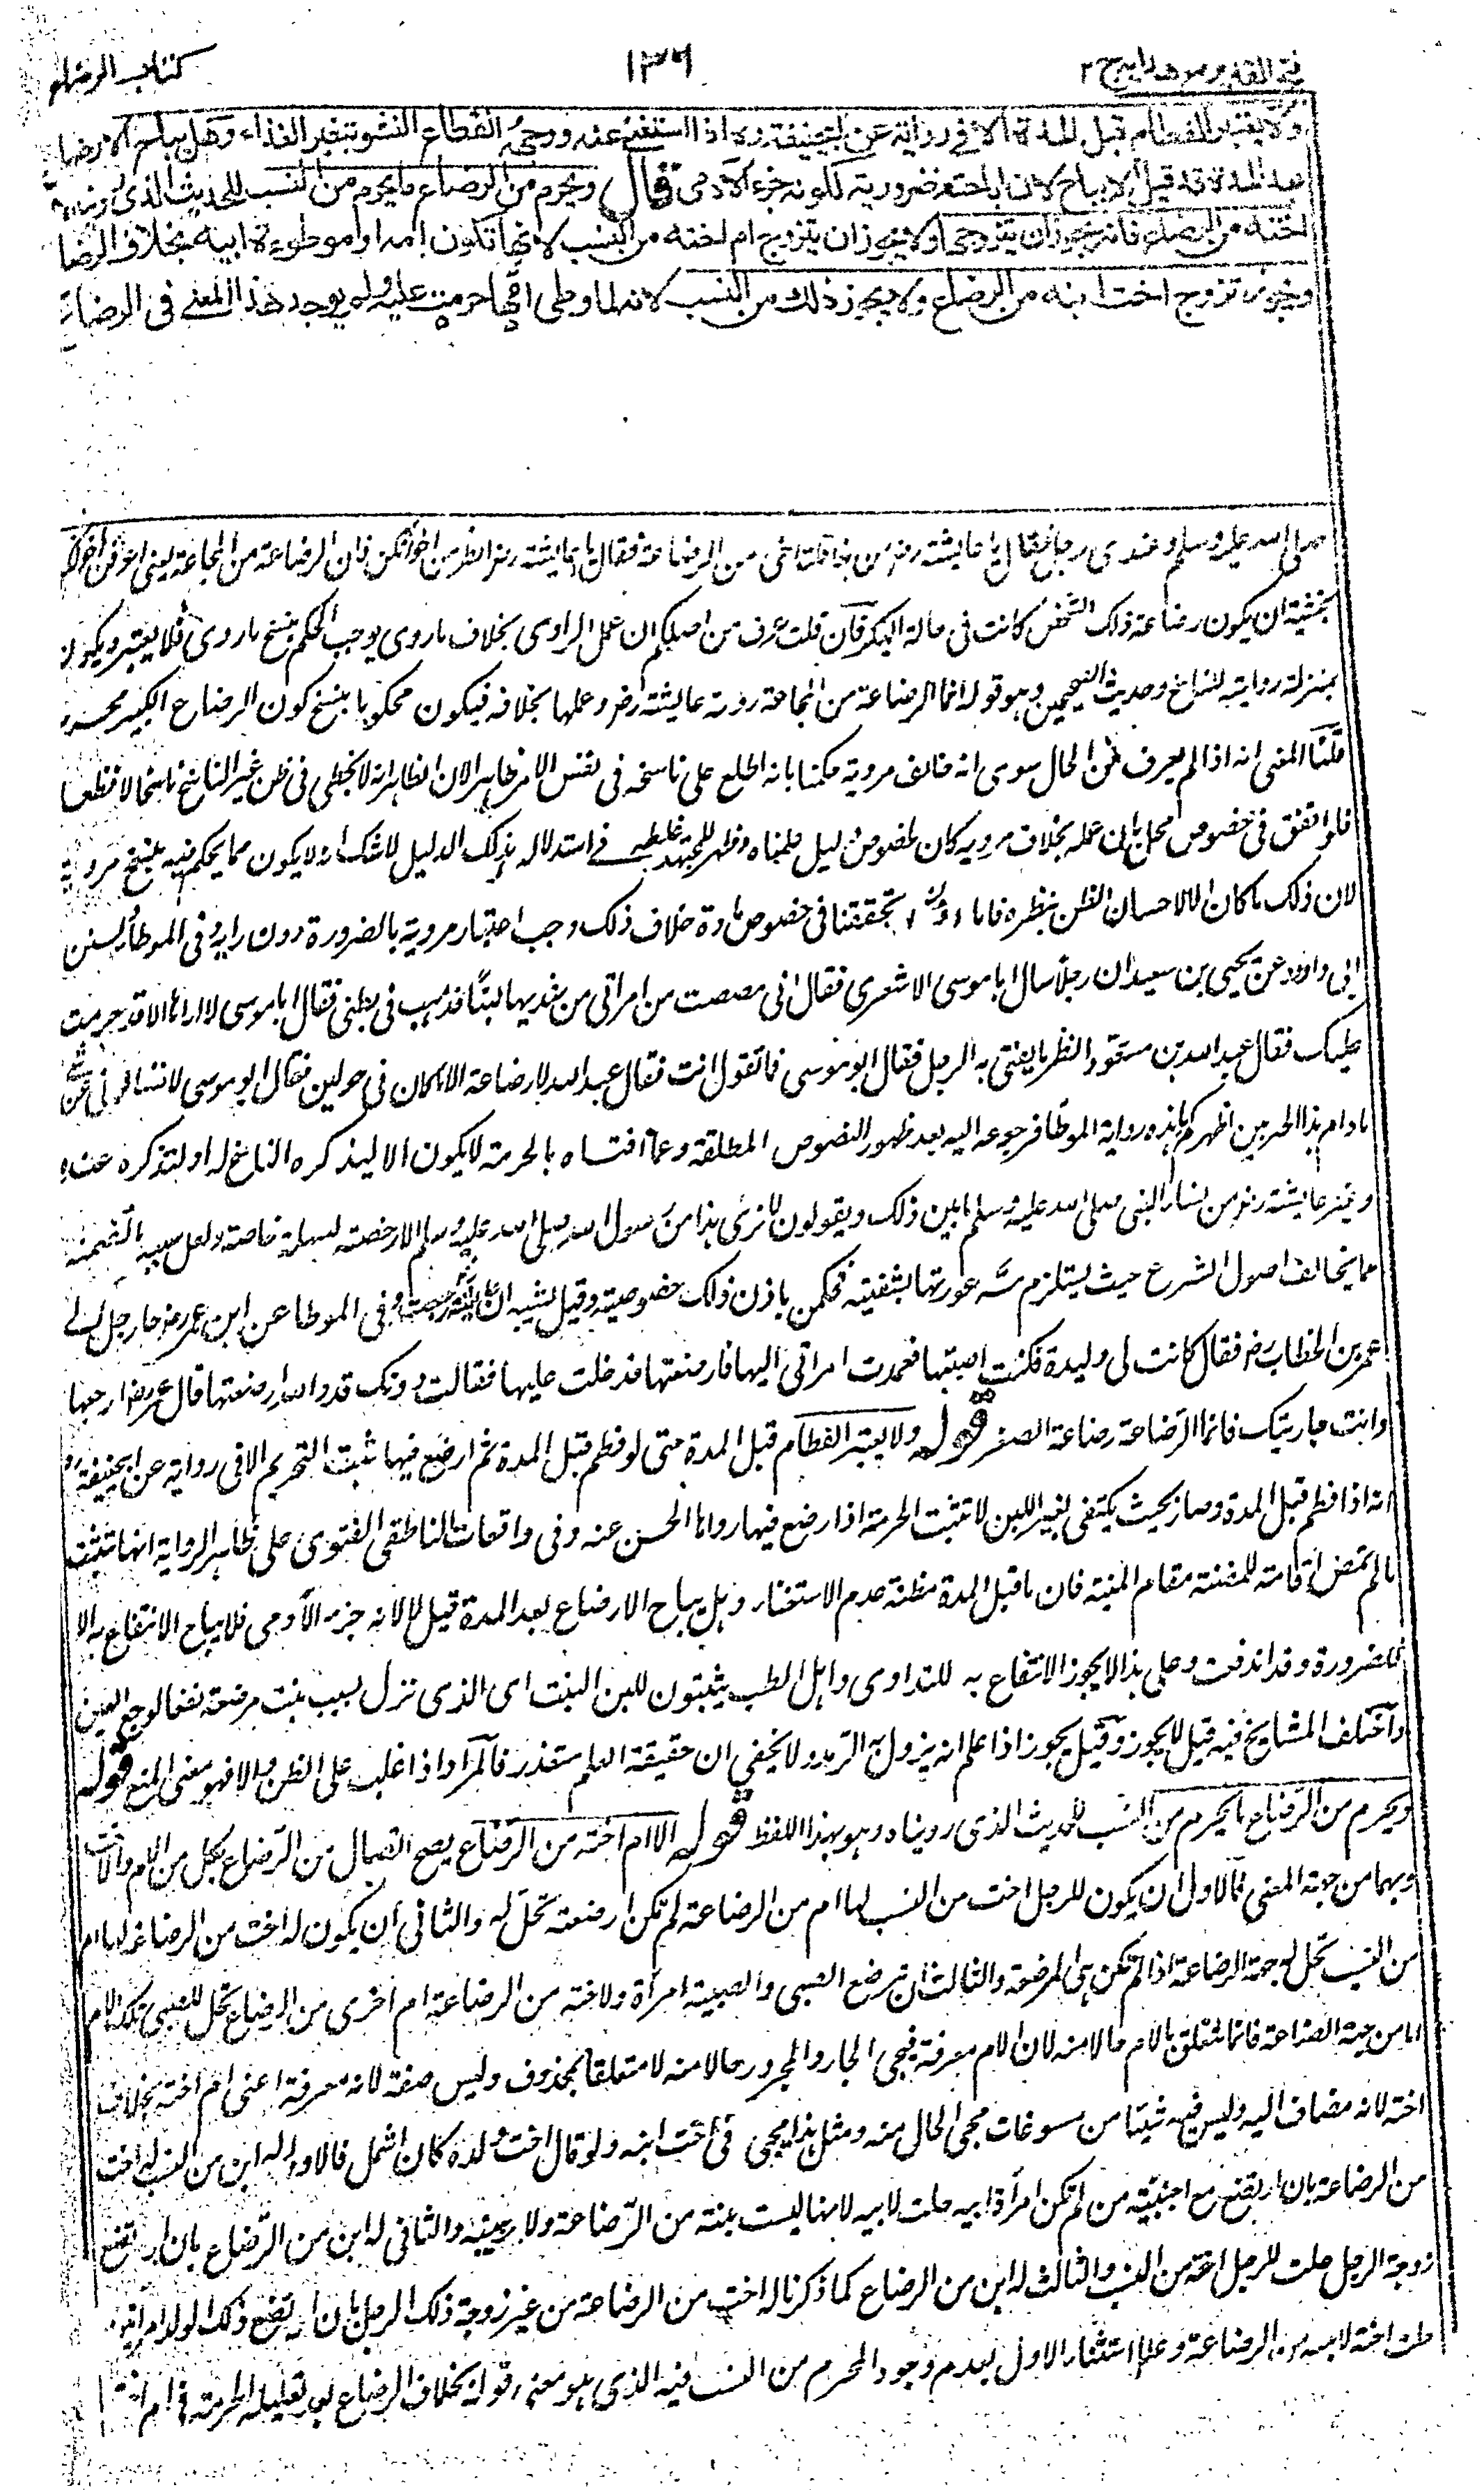 فتح القدير مع هدايه ج ٢
١٣٦
كتاب الرضاع
ولا يعتبر الفطام قبل المدة الا في رواية عن ابي حنيفة ره اذا استغنى عنه ووجهه انقطاع النشو بتغير الغذاء وهل يباح الارضاع
بعد المدة قد قيل لا يباح لان اباحته ضرورية لكونه جزء الآدمي قال ويحرم من الرضاع ما يحرم من النسب للحديث الذي روينا
اخته من الرضاع فانه يجوز ان يتزوجها ولا يجوز ان يتزوج ام اخته من النسب لانها تكون امه او موطوءة ابيه بخلاف الرضا
ويجوز تزوج اخت ابنه من الرضاع ولا يجوز ذلك من النسب لانه لما وطي امها حرمت عليه ولم يوجد هذا المعنى في الرضاع
صلى الله عليه وسلم وعندي رجل فقال يا عايشة رض من هذا قلت اخي من الرضاعة فقال يا عايشة رض انظرن من اخوانكن فان الرضاعة من المجاعة يعني اعرفن اخوانكن
بخشية ان يكون رضاعة ذلك الشخص كانت في حالة الكبر فان قلت عرف من اصلكم ان عمل الراوي بخلاف ما روى يوجب الحكم بنسخ ما روى فلا يعتبر ويكون
بمنزلة روايته للناسخ وحديث الصحيحين وهو قوله انما الرضاعة من المجاعة روته عايشة رض وعملها بخلافه فيكون محكوما بنسخ كون الرضاع الكبير محرما
قلنا المعنى انه اذا لم يعرف من الحال سوى انه خالف مرويه حكمنا بانه اطلع على ناسخه في نفس الامر ظاهرا لان الظاهر انه لا يخطي في ظن غير الناسخ ناسخا لا قطعا
فلو اتفق في خصوص محل بان عمله بخلاف مرويه كان لخصوص دليل علمناه وظهر للمجتهد غلطه في استدلاله بذلك الدليل لا شك انه لا يكون مما يحكم فيه بنسخ مرويه
لان ذلك ما كان الا لاحسان الظن بنظره فاما تحققنا في خصوص مادة خلاف ذلك وجب اعتبار مرويه بالضرورة دون رايه وفي الموطأ وسنن
ابي داود عن يحيى بن سعيد ان رجلا سال ابا موسى الاشعري فقال اني مصصت من امراتي من ثديها لبنا فذهب في بطني فقال ابا موسى لا اراها الا قد حرمت
عليك فقال عبد الله بن مسعود انظر ما يفتي به الرجل فقال ابو موسى فما تقول انت فقال عبد الله لا رضاعة الا ما كان في حولين فقال ابو موسى لا تسالوني عن شي
ما دام هذا الحبر بين اظهركم هذه رواية الموطأ فرجوعه اليه بعد ظهور النصوص المطلقة وعما افتاه بالحرمة لا يكون الا لذكره الناسخ له او لتذكره عنده
وغير عايشة رض من نساء النبي صلى الله عليه وسلم يابين ذلك ويقولون لا نرى هذا من رسول الله صلى الله عليه وسلم الا رخصة لسهلة خاصة ولعل سببه ما تضمنه
مما يخالف اصول الشرع حيث يستلزم مس عورتها بشفتيه فحكمن بان ذلك خصوصيته وقيل يشبه ان عايشة رجعت وفي الموطا عن ابن عمر رض جاء رجل الى
عمر بن الخطاب رض فقال كانت لي وليدة فكنت اصيبها فعمدت امراتي اليها فارضعتها فدخلت عليها فقالت دونك قد والله ارضعتها قال عمر رض ارجعها
وائت جاريتك فانما الرضاعة رضاعة الصغر قوله ولا يعتبر الفطام قبل المدة حتى لو فطم قبل المدة ثم ارضع فيها ثبت التحريم الا في رواية عن ابي حنيفة ره
انه اذا فطم قبل المدة وصار بحيث يكتفي بغير اللبن لا تثبت الحرمة اذا رضع فيها رواها الحسن عنه وفي واقعات الناطفي الفتوى على ظاهر الرواية انها تثبت
ما لم تمض اقامة للمظنة مقام المئنة فان ما قبل المدة مظنة عدم الاستغناء وهل يباح الارضاع بعد المدة قيل لا لانه جزء الآدمي فلا يباح الانتفاع به الا
للضرورة وقد اندفعت وعلى هذا لا يجوز الانتفاع به للتداوي واهل الطب يثبتون للبن البنت اي الذي نزل بسبب بنت مرضعة نفعا لوجع العين
واختلف المشايخ فيه قيل لا يجوز وقيل يجوز اذا علم انه يزول به الرمد ولا يخفى ان حقيقة العلم متعذر فالمراد اذا غلب على الظن والا فهو معنى المنع قوله
ويحرم من الرضاع ما يحرم من النسب للحديث الذي رويناه وهو بهذا اللفظ قوله الا ام اخته من الرضاع يصح اتصال من الرضاع بكل من الام والاخت
وبهما من جهة المعنى فالاول ان يكون للرجل اخت من النسب لها ام من الرضاعة لم تكن ارضعته تحل له والثاني ان يكون له اخت من الرضاعة لها ام
من النسب تحل له جهة الرضاعة اذا لم تكن هي المرضعة والثالث ان ترضع الصبي والصبية امرأة ولاخته من الرضاعة ام اخرى من الرضاع تحل للصبي تلك الام
اما من جهة الصناعة فانما يتعلق بالام حالا منه لان الام معرفة فيجي الجار والمجرور حالا منه لا متعلقا بمحذوف وليس صفة لانه معرفة اعني ام اخته بخلاف
اخته لانه مضاف اليه وليس فيه شيئا من مسوغات مجي الحال منه ومثل هذا يجي في اخت ابنه ولو قال اخت ولده كان اشمل فالاول له ابن من النسب له اخت
من الرضاعة بان ارتضع مع اجنبية من لم تكن امرأة ابيه حلت لابيه لانها ليست بنته من الرضاعة ولا ربيبته والثاني له ابن من الرضاع بان ارتضع
زوجة الرجل حلت للرجل اخته من النسب والثالث له ابن من الرضاع كما ذكرنا له اخت من الرضاعة من غير زوجة ذلك الرجل بان ارتضع ذلك الولد امرأة
حلت اخته لابيه من الرضاعة وعلل استثناء الاول بعدم وجود المحرم من النسب فيه الذي هو معنى قوله بخلاف الرضاع بعد تعليله الحرمة في ام اخته